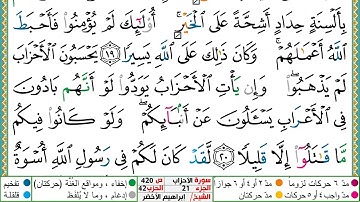 بِأَلْسِنَةٍ حِدَادٍ أَشِحَّةً عَلَى ٱلْخَيْرِ ۚ أُو۟لَـٰٓئِكَ لَمْ يُؤْمِنُوا۟ فَأَحْبَطَ
ٱللَّهُ أَعْمَـٰلَهُمْ ۚ وَكَانَ ذَٰلِكَ عَلَى ٱللَّهِ يَسِيرًا ١٩ يَحْسَبُونَ ٱلْأَحْزَابَ
لَمْ يَذْهَبُوا۟ ۖ وَإِن يَأْتِ ٱلْأَحْزَابُ يَوَدُّوا۟ لَوْ أَنَّهُم بَادُونَ
فِى ٱلْأَعْرَابِ يَسْـَٔلُونَ عَنْ أَنۢبَآئِكُمْ ۖ وَلَوْ كَانُوا۟ فِيكُم
مَّا قَـٰتَلُوٓا۟ إِلَّا قَلِيلًا ٢٠ لَّقَدْ كَانَ لَكُمْ فِى رَسُولِ ٱللَّهِ أُسْوَةٌ
مدّ ٦ حركات لزوماً مدّ ٢ أو ٤ أو ٦ جوازاً سورة الأحزاب ص 420 إخفاء، ومواقع الغُنَّة (حركتان) تفخيم
مدّ واجب ٤ أو ٥ حركات مدّ حركتان الجزء 21 الحزب 42 إدغام، وما لا يُلفَظ قلقلة
الشيخ/ إبراهيم الأخضر